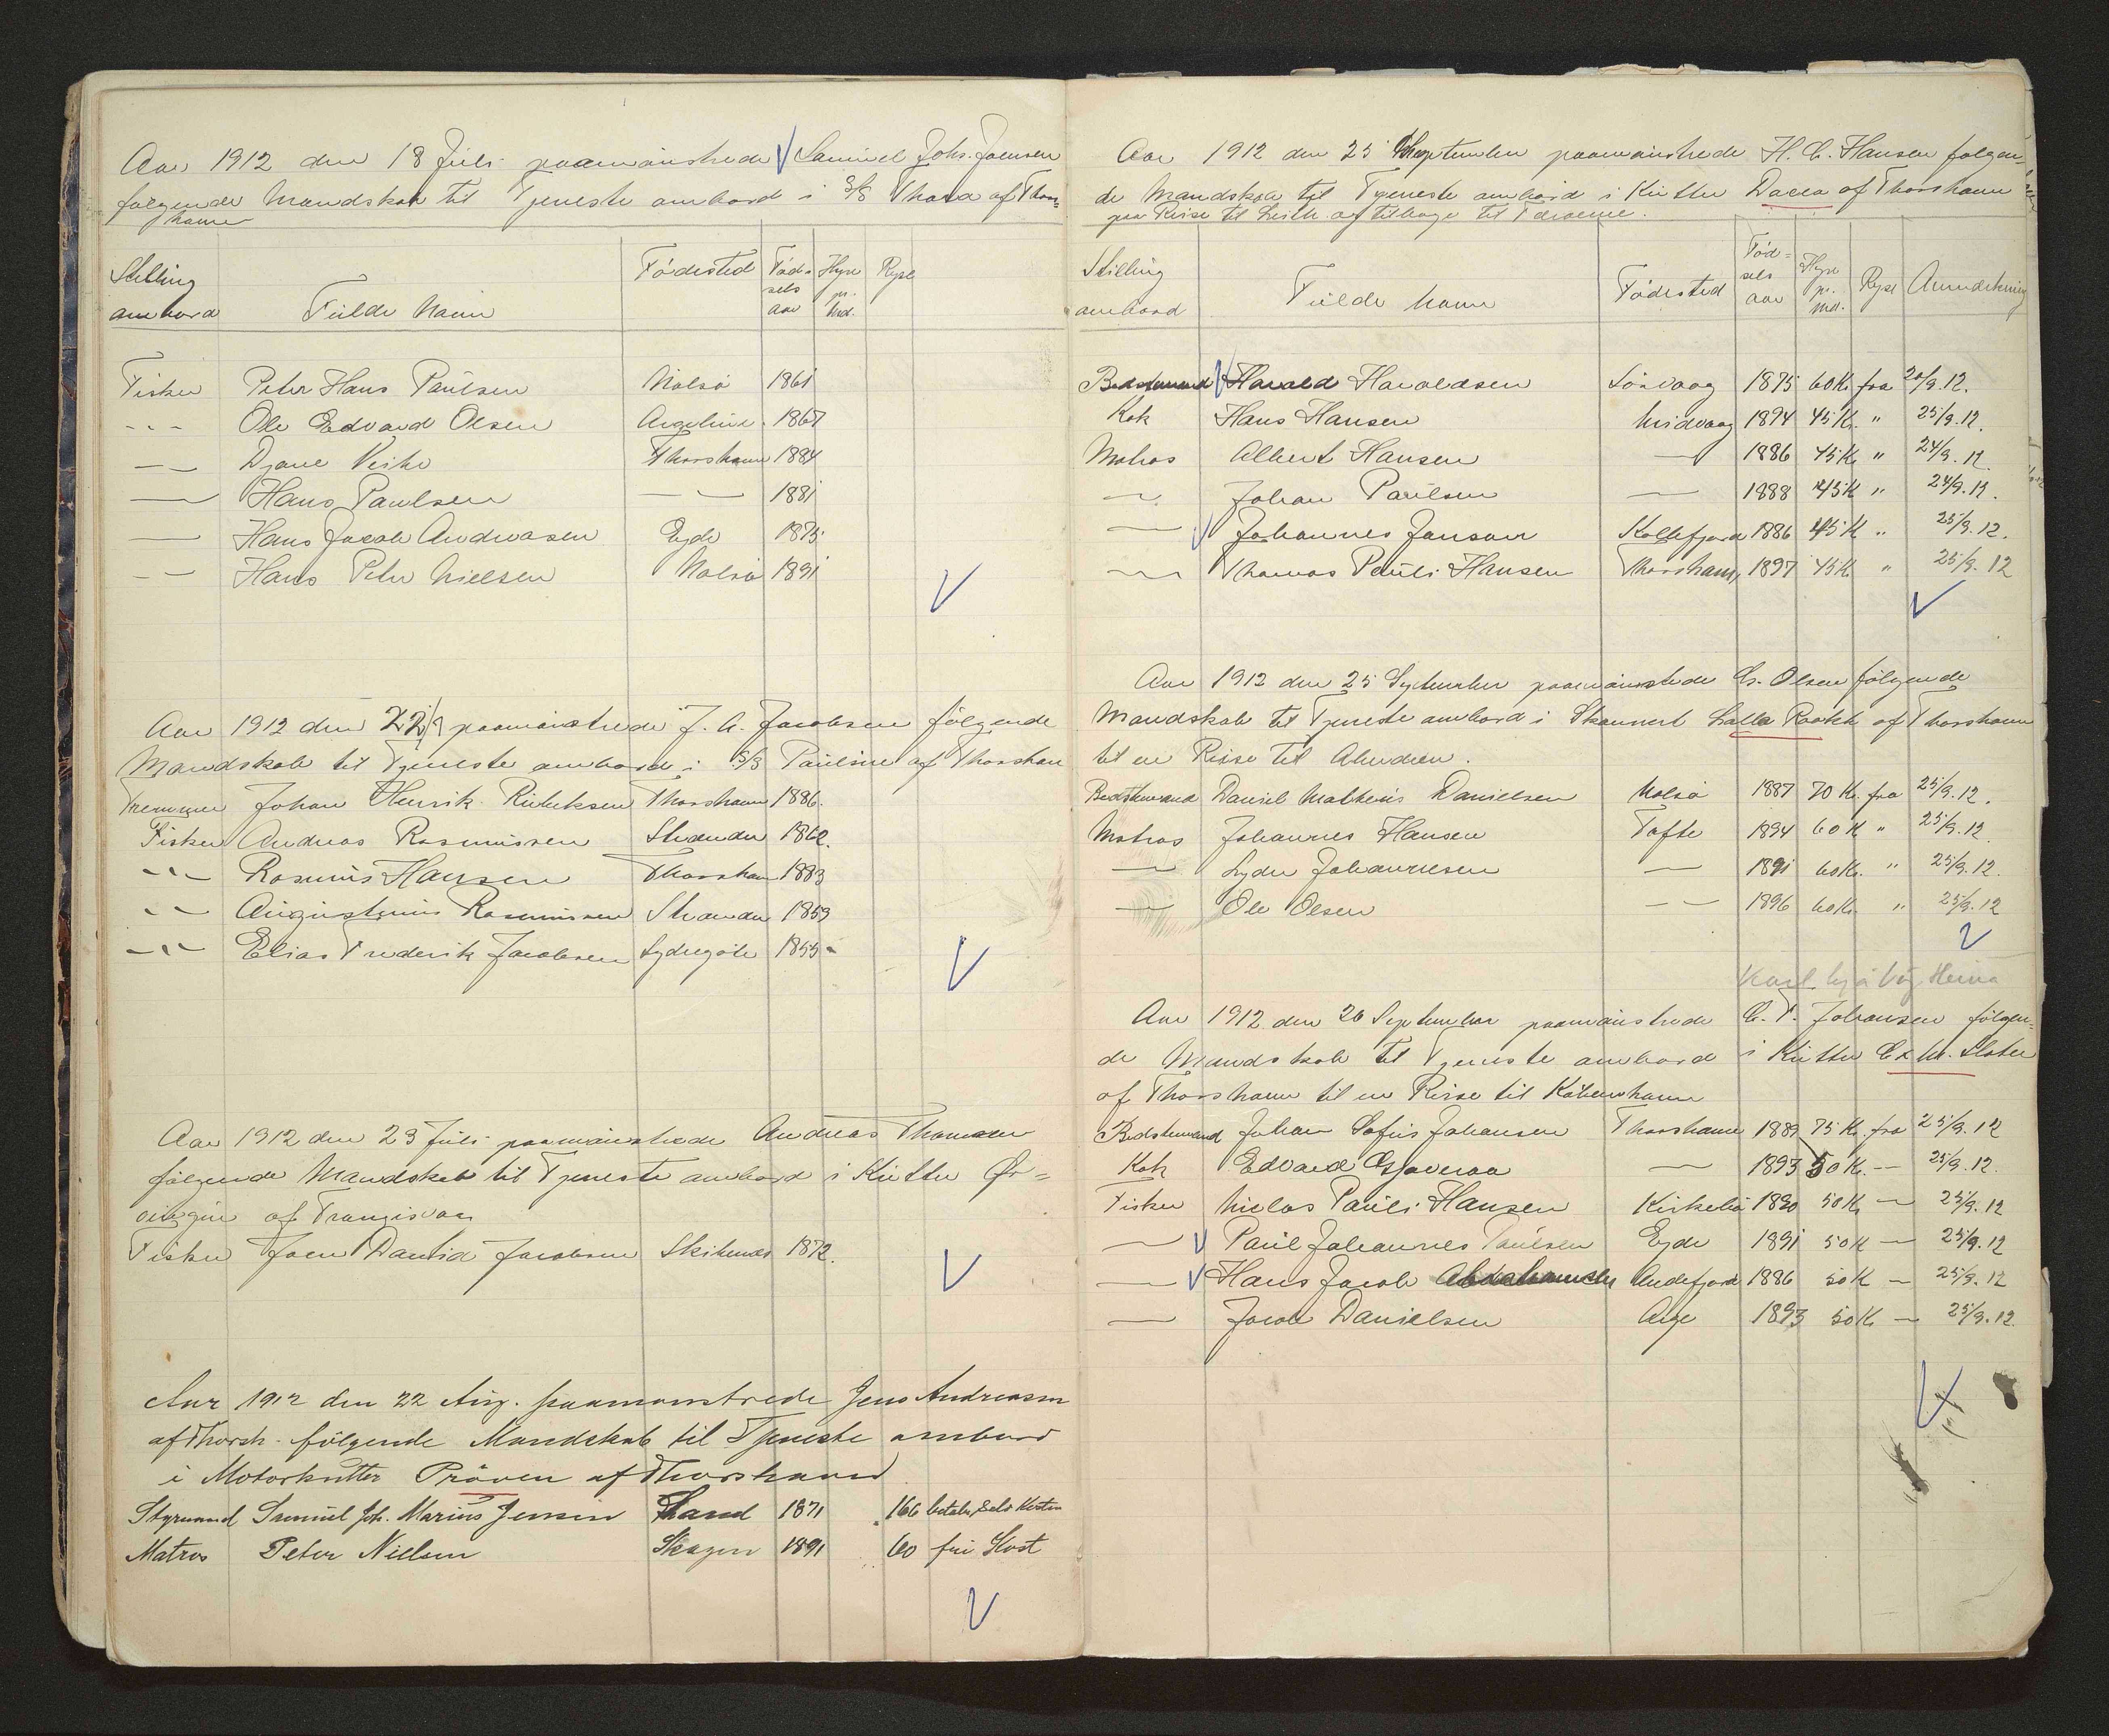 Aar 1912 den 18 Juli paamönstrede Samuel Johs. Joensen
følgende Mandskab til Tjeneste ombord i S/S Thora af Thors=
havn
Stilling ombord Fulde Navn Födested Födselsaar Hyre pr. Md. Rejse
Fisker Peter Hans Paulsen Nolsö 1861
- - - Ole Edvard Olsen 1867
— — Djone Thorshavn 1884
— Hans Paulsen — — 1881
— Hans Jacob Andreasen Ejde 1875
— — Hans Peter Nielsen Nolsö 1891
Aar 1912 den 22/7 paamönstrede J. A. Jacobsen följende
Mandskab til Tjeneste ombord i S/S Pauline af Thorshavn
Johan Henrik Thorshavn 1886.
Fisker Andreas Rasmussen Strender 1862.
- " - Rasmus Hansen Thorshavn 1883
- " - Augustinus Rasmussen Strender 1859
- " - Elias Frederik Jacobsen Sydregöte 1855
Aar 1912 den 23 Juli paamönstrede Andreas Thomsen
fölgende Mandskab til Tjeneste ombord i Kutter Ör=
af Trangisvaag
Fisker Joen David Jacobsen 1872.
Aar 1912 den 22 Aug. paamönstrede Jens Andreasen
af Thorsh. fölgende Mandskab til Tjeneste ombord
i Motorkutter Pröven af Thorshavn
Styrmand Samuel Joh. Marius Jensen Sand 1871 166 betaler selv Kosten
Matros Peter Nielsen Skagen 1891 60 fri Kost
Aar 1912 den 25 September paamönstrede H. C. Hansen følgen=
de Mandskab til Tjeneste ombord i Kutter Dacca af Thorshavn
paa Reise til Leith og tilbage til Færöerne.
Stilling ombord Fulde Navn Födested Födselsaar Hyre pr. Md. Rejse Anmærkning
Bedstemand Harald Haraldsen Sörvaag 1875 60 Kr. fra 20/9.12.
Kok Hans Hansen Midvaag 1894 45 Kr. " 25/9.12.
Matros Albert Hansen — 1886 45 Kr " 24/9.12.
— Johan Paulsen — 1888 45 K " 24/9.12.
— Johannes Jensen Kollefjord 1886 45 K " 25/9.12.
— Thomas Pauli Hansen Thorshavn 1897 45 K " 25/9.12
Aar 1912 den 25 September paamönstrede C. Olsen fölgende
Mandskab til Tjeneste ombord i Skonnert Lalla Rookh af Thorshavn
til en Reise til Aberdeen.
Bedstemand Daniel Matheus Danielsen Nolsö 1887 70 Kr. fra 25/9.12.
Matros Johannes Hansen Tofte 1894 60 K " 25/9.12
— Lyder Johannesen — 1891 60 Kr. " 25/9.12.
— Ole Olsen — — 1896 60 Kr. " 25/9.12
Aar 1912 den 26 September paamönstrede C. F. Johansen fölgen=
de Mandskab til Tjeneste ombord i Kutter
af Thorshavn til en Reise til Köbenhavn
Bedstemand Johan Sofus Johansen Thorshavn 1889 75 Kr. fra 25/9.12
Kok Edvard Gjoveraa — 1893 50 Kr. — 25/9.12.
Fisker Niclas Pauli Hansen Kirkebö 1890 50 Kr — 25/9.12
— Paul Johannes Paulsen Ejde 1891 50 K — 25/9.12
— Hans Jacob Abrahamsen Andefjord 1886 50 K — 25/9.12
— Jacob Danielsen Arge 1893 50 K — 25/9.12.